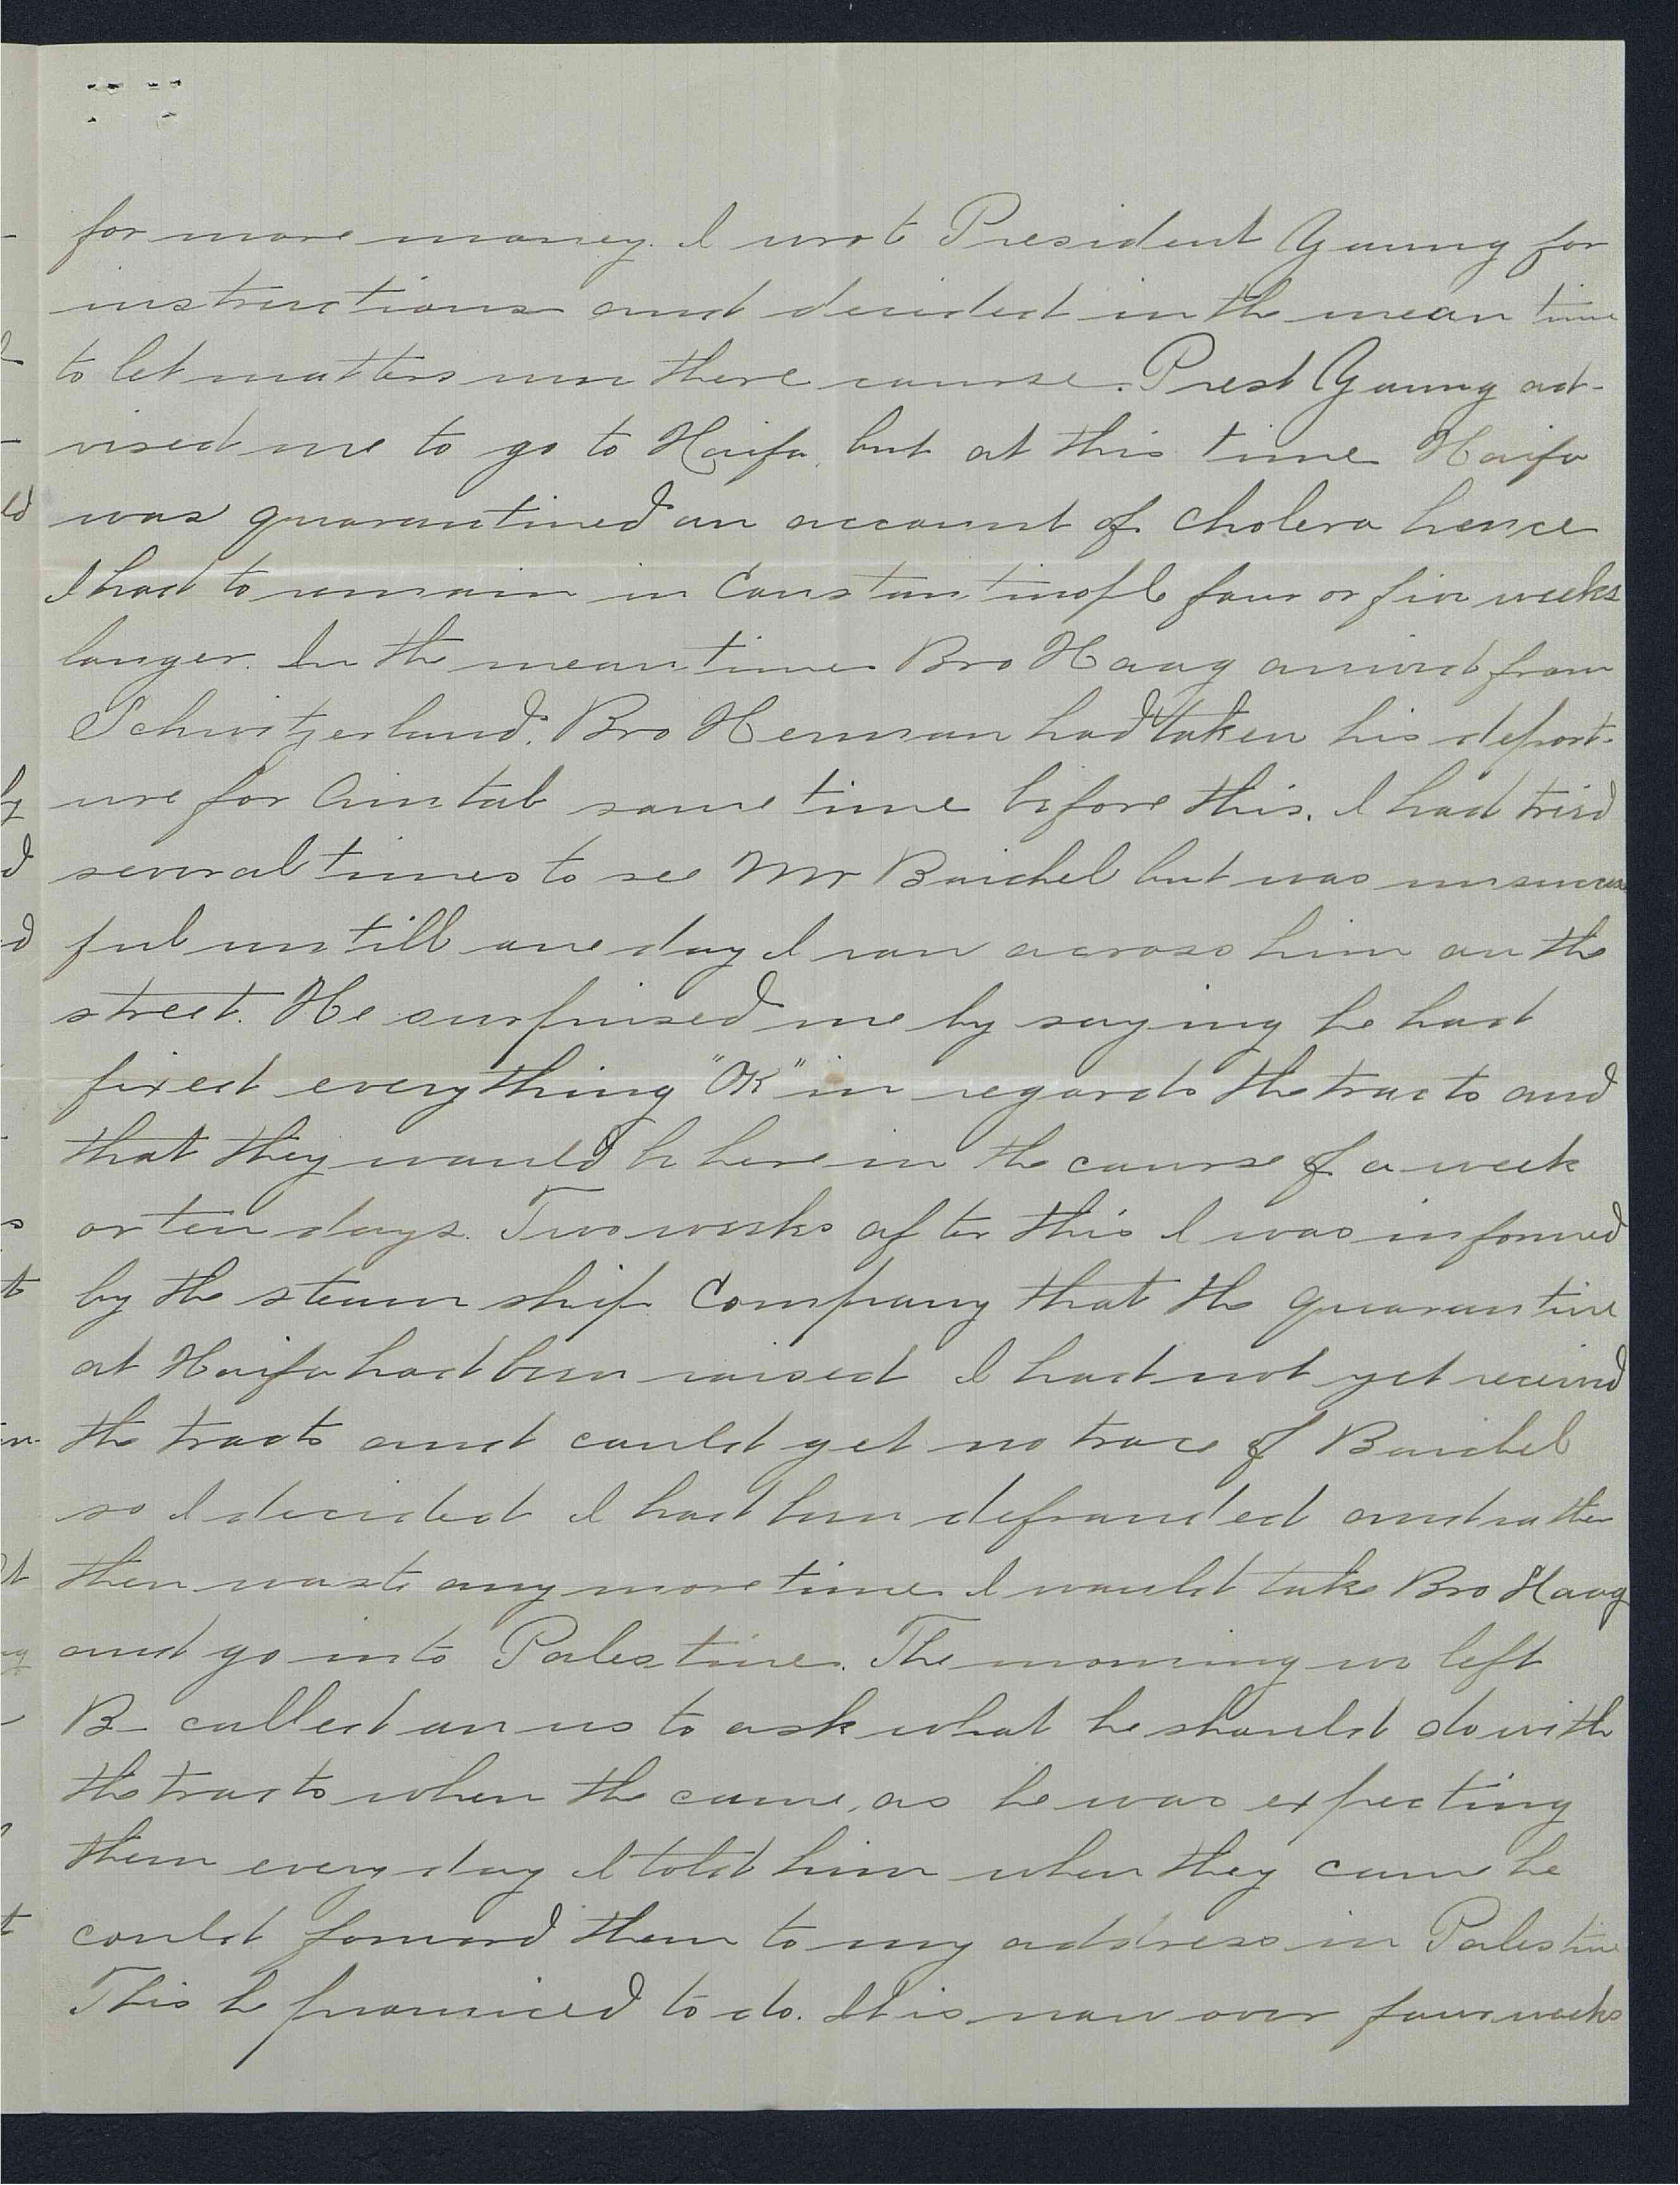 for more money. I wrot President Young for
instructions and decided in the mean time
to let matters run there course. Prest Young ad-
vised me to go to Haifa, but at this time Haifa
was quarantined on account of cholera hence
I had to remain in Constantinople four or five weeks
longer. In the meantime Bro Haag arrived from
Schwitzerland. Bro Herman had taken his depart-
ure for Aintab some time before this. I had tried
several times to see Mr Baichel but was unsucces
ful untill one day I ran across him on the
street. He surprised me by saying he had
fixed everything "OK" in regards the tracts and
that they would be here in the course of a week
or ten days. Two weeks after this I was informed
by the steam ship Company that the quarantine
at Haifa had been raised I had not yet received
the tracts and could get no trace of Baichel
so I decided I had been defrauded and rather
then waste any more time I would take Bro Haag
and go into Palestine. The morning we left
B— called on us to ask what he should do with
the tracts when the came, as he was expecting
them every day I told him when they came he
could forward them to my address in Palestine
This he promiced to do. It is now over four weeks